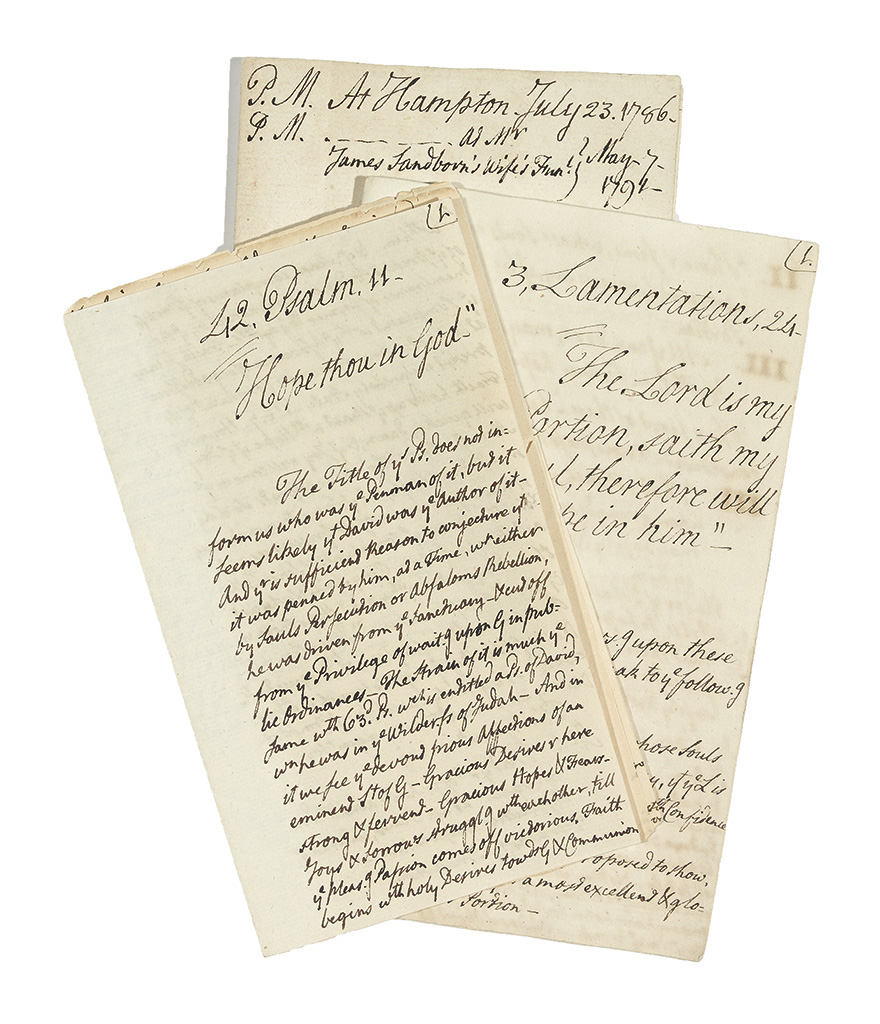 P. M. At Hampton July 23. 1786-
P. M. . - - - - - - at Mr
James Sandborn's Wife's Fun: } May - 7 -
1791 -
(1.
42, Psalm, 11 -
"Hope thou in God"-
The Title of yͤ Ps. does not in=
form us who was yͤ Penman of it, but it
seems likely yͭ David was yͤ Author of it -
And yͬ is sufficient Reason to conjecture yͭ
it was penned by him, at a Time, wⁿ either
by Sauls Persecution or Absaloms Rebellion,
he was driven from yͤ Sanctuary - & cut off
from yͤ Privilege of wait.g upon G in pub-
lic Ordinances - The Strain of it is much yͤ
same wth 63d Ps. wch is entitled a Ps. of David,
wn he was in yͤ Wilderss of Judah - And in
it we see yͤ devout pious Affections of an
eminent St of G - Gracious Desires r here
strong & fervent - Gracious Hopes & Fears -
Joys & Sorrows struggl.g wth each other, till
yͤ pleas.g Passion comes off victorious. Faith
begins wth holy Desires towds G & Communion
(1.
3, Lamentations, 24 -
"The Lord is my
Portion, saith my
l, therefore will
pe in him" -
.g upon these
ak to yͤ follow.g
hose Souls
yͭ yͤ L is
wth Confidence
oposed to show,
a most excellent & glo-
Portion -